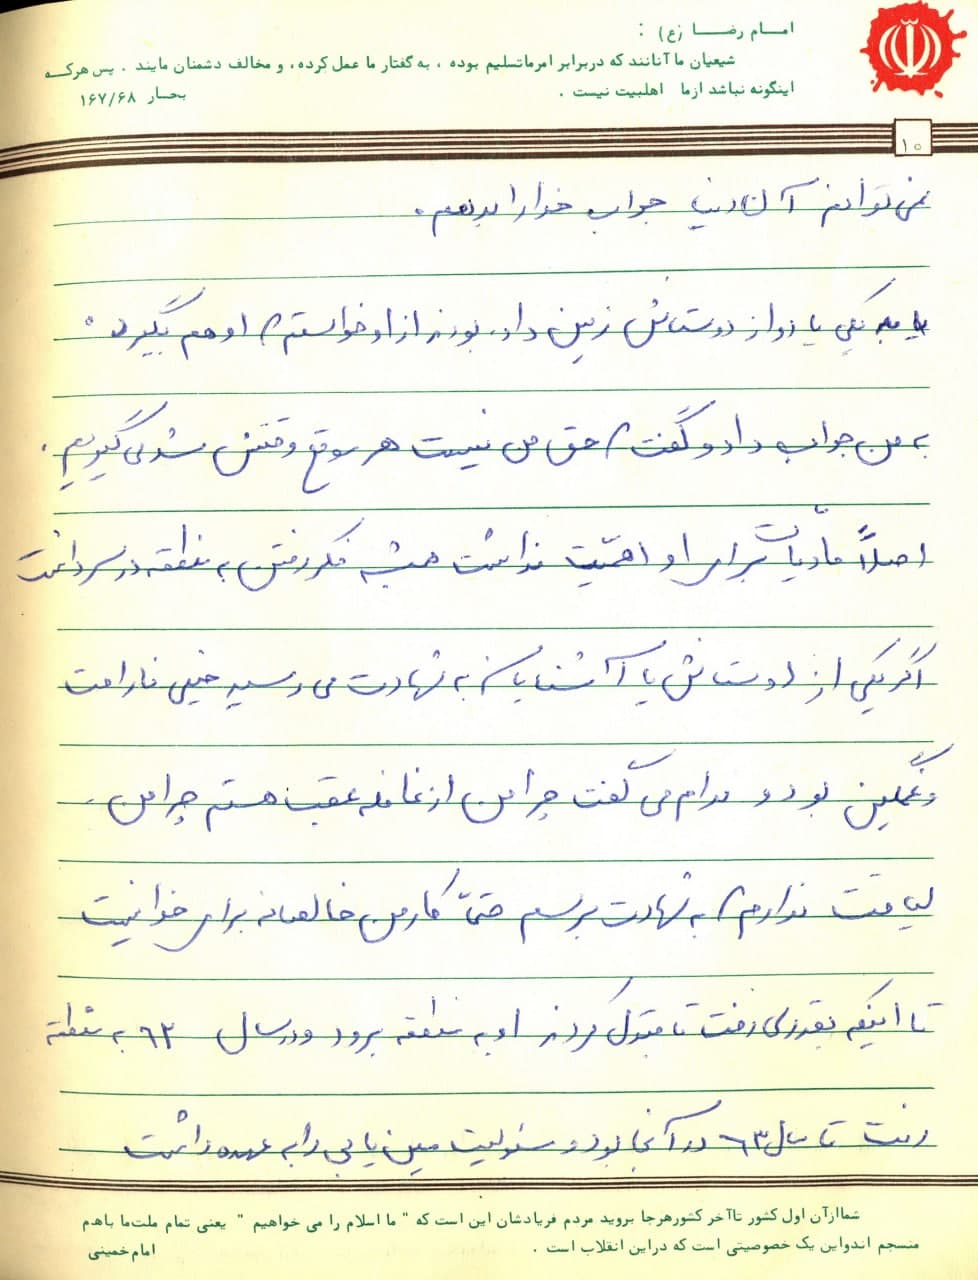 امام رضا (ع) :
شیعیان ما آنانند که دربرابر امرماتسلیم بوده ، به گفتار ما عمل کرده ، و مخالف دشمنان مایند . پس هرکه
اینگونه نباشد ازما اهلبیت نیست .
بحار ۱۶۷/۶۸
۱۰
نمی توانم آن دنیا جواب خدا را بدهم .
به یکی یا دو از دوستانش زمین داده بودند از او خواستم او هم بگیرد
به من جواب داد و گفت حق من نیست هر موقع وقتش شد می گیریم .
اصلاً مادیات برای او اهمّیت نداشت همیشه فکر رفتن به منطقه در سر داشت
اگر یکی از دوستانش یا آشنایان به شهادت می رسید خیلی ناراحت
و غمگین بود و مدام می گفت چرا من از قافله عقب هستم چرا من
لیاقت ندارم به شهادت برسم حتمّاً کار من خالصانه برای خدا نیست
تا اینکه بقدری رفت تا قبول کردند او به منطقه برود و در سال ۶۲ به منطقه
رفت تا سال ۶۳ در آنجا بود و مسئولیت مین یابی را به عهده داشت
شماازآن اول کشور تاآخر کشورهرجا بروید مردم فریادشان این است که " ما اسلام را می خواهیم " یعنی تمام ملت‌ما باهم
منسجم اندواین یک خصوصیتی است که دراین انقلاب است .
امام خمینی